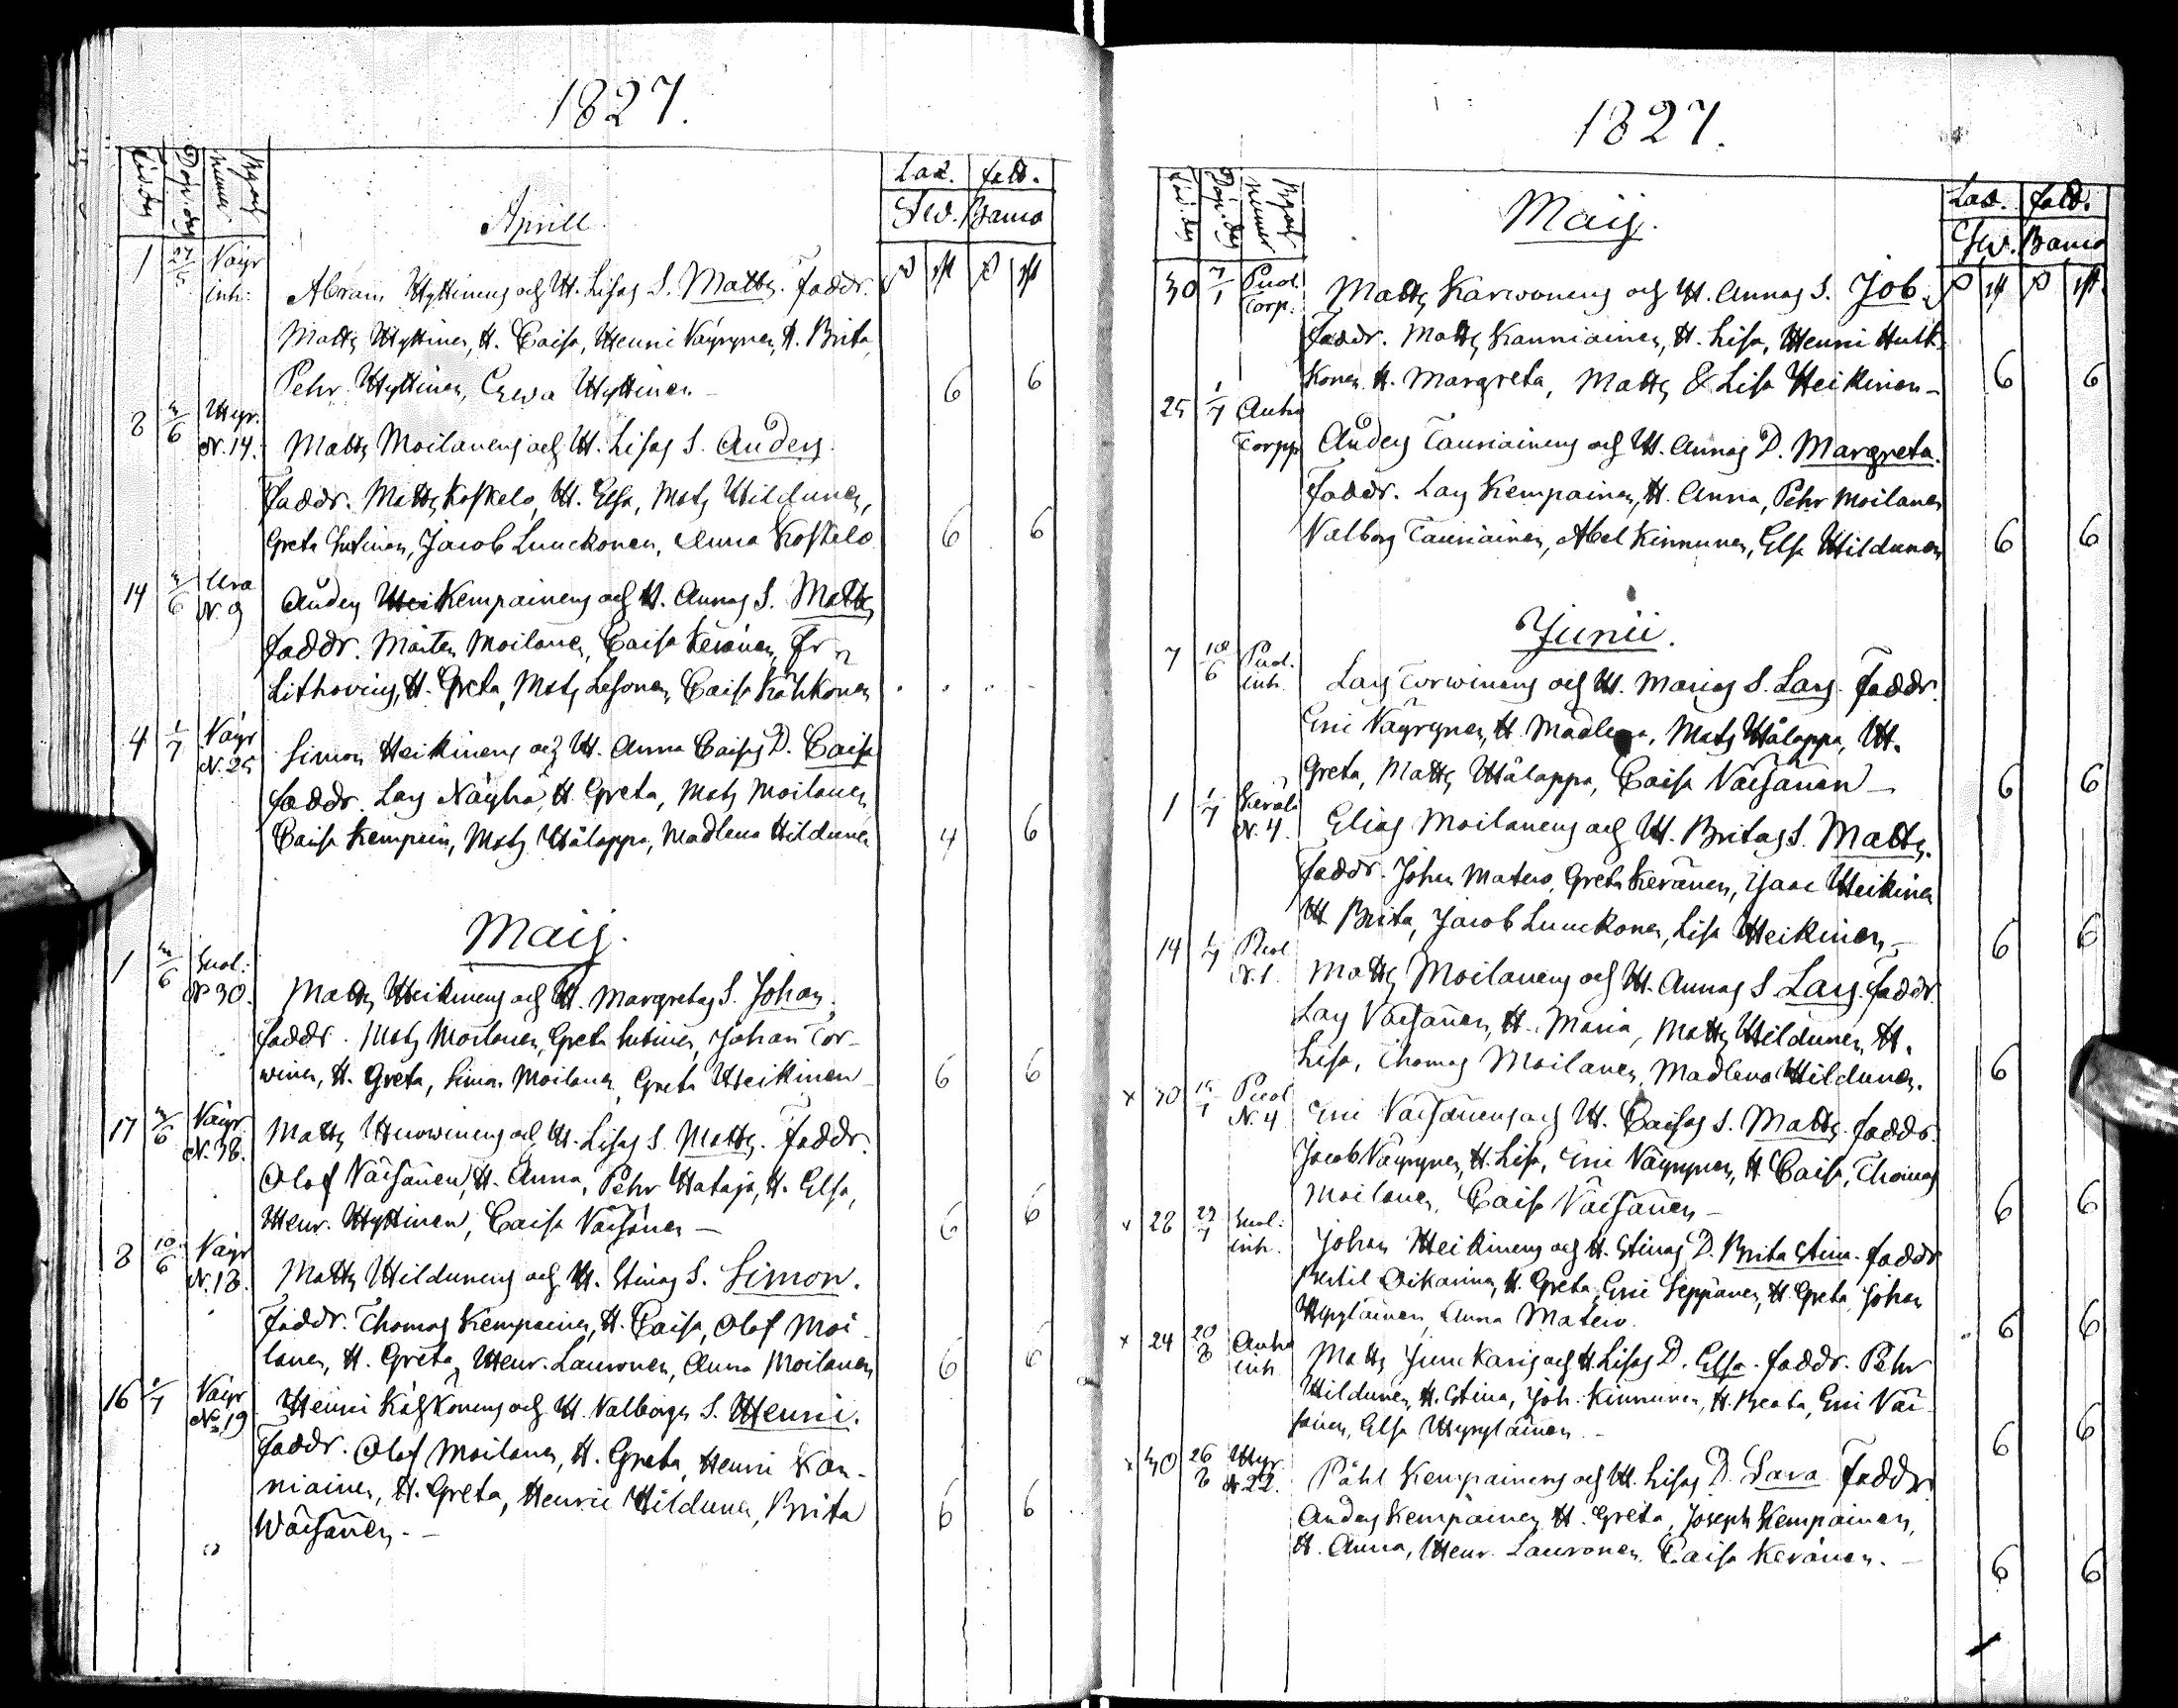 1827.
Föd. dag
Döp. dag
Byens
numer
Laz.
fatd.
Aprill.
1 27/5 Näyr
inh:
Abram Hyttinens och H. Lisas S. Matts. Faddr.
Matts Hyttinen, H. Caisa, Henric Väyrynen, H. Brita,
Pehr Hyttinen, Ewa Hyttinen 6 6
8 3/6 Hyr.
N. 14. Matts Moilanens och H. Lisas S. Anders.
Faddr. Matts Koskelo, H. Elsa, Mats Hildunen,
Greta Jacob Lunckonen, Anna Koskelo 6 6
14 3/6 Ura
N. 9 Anders Kempainens och H. Annas S. Matts
Faddr. Mårten Moilanen, Caisa Keränen, Fr n
Lithovius, H. Greta, Mats Lesonen, Caisa Kähkönen
4 1/7 Näyr
N. 25 Simon Heikinens och H. Anna Caisas D. Caisa
Faddr. Lars Näyhä, H. Greta, Mats Moilanen
Caisa Kempain, Mats Hälappa, Madlena Hildunen 4 6
Maij.
1 3/6
N 30. Matts Heikinens och H. Margretas S. Johan.
Faddr. Mats Moilanen, Greta Johan Tor-
winen, H. Greta, Simon Moilanen, Greta Heikinen 6 6
17 3/6 Näyr
N. 38. Matts Huowinens och H. Lisas S. Matts. Faddr.
Olof Väisänen, H. Anna, Pehr Hataja, H. Elsa,
Henr. Hyttinen, Caisa Väisänen — 6 6
8 10/6 Näyr
N. 18. Matts Hildunens och H. Stinas S. Simon.
Faddr. Thomas Kempainen, H. Caisa, Olof Moi-
lanen, H. Greta, Henr. Lauronen, Anna Moilanen 6 6
16 1/7 Näyr
No 19 Henric Kähkönens och H. Valborgs S. Henric.
Faddr. Olof Moilanen, H. Greta, Henric Kan-
niainen, H. Greta, Henric Hildunen, Brita
Wäisänen. — 6 6
1827.
Föd. dag
Döp. dag
Byens
numer
Laz.
fatd.
Maij.
30 7/1 Puol.
Torp. Matts Karwonens och H. Annas S. Job.
Faddr. Matts Kanniainen, H. Lisa, Henric Hutt-
konen H. Margreta, Matts & Lisa Heikinen — 6 6
25 1/7 Anha
Torpp Anders Tauriainens och H. Annas D. Margreta.
Faddr. Lars Kempainen, H. Anna, Pehr Moilanen
Valborg Tauriainen, Abel Kinnunen, Elsa Hildunen 6 6
Junii.
7 10/6 Puol.
inh. Lars Torwinens och H. Marias S. Lars. Faddr.
Eric Väyrynen, H. Madlena, Mats Hälappa, H.
Greta, Matts Hälappa, Caisa Väisänen — 6 6
1 1/7 Kerälä
N. 4. Elias Moilanens och H. Britas S. Matts.
Faddr. Johan Matero, Greta Keränen, Isac Heikinen
H Brita, Jacob Lunckonen, Lisa Heikinen — 6 6
14 1/7 Puol
N. 1. Matts Moilanens och H. Annas S Lars. Faddr.
Lars Väisänen, H. Maria, Matts Hildunen, H.
Lisa, Thomas Moilanen, Madlena Hildunen. 6
x 30 15/7 Puol
N. 4 Eric Väisänens och H. Caisas S. Matts. Faddr.
Jacob Väyrynen, H. Lisa, Eric Väyrynen, H Caisa, Thomas
Moilanen, Caisa Väisänen — 6 6
x 28 29/7
inh. Johan Heikinens och H. Stinas D. Brita Stina. Faddr
Bertil Oikarinen, H. Greta, Eric Seppänen, H. Greta, Johan
Hyrylainen, Anna Matero. 6 6
x 24 20/8 Anha
inh Matts Junckaris och H. Lisas D. Elsa. Faddr. Pehr
Hildunen, H. Stina, Joh. Kinnunen, H. Beata, Eric Väi-
sänen, Elsa Hyryläinen — 6 6
x 30 26/8 Hyr.
N 22. Påhl Kempainens och H. Lisas D. Sara Faddr
Anders Kempainen, H. Greta, Joseph Kempainen,
H. Anna, Henr. Lauronen, Caisa Keränen. — 6 6